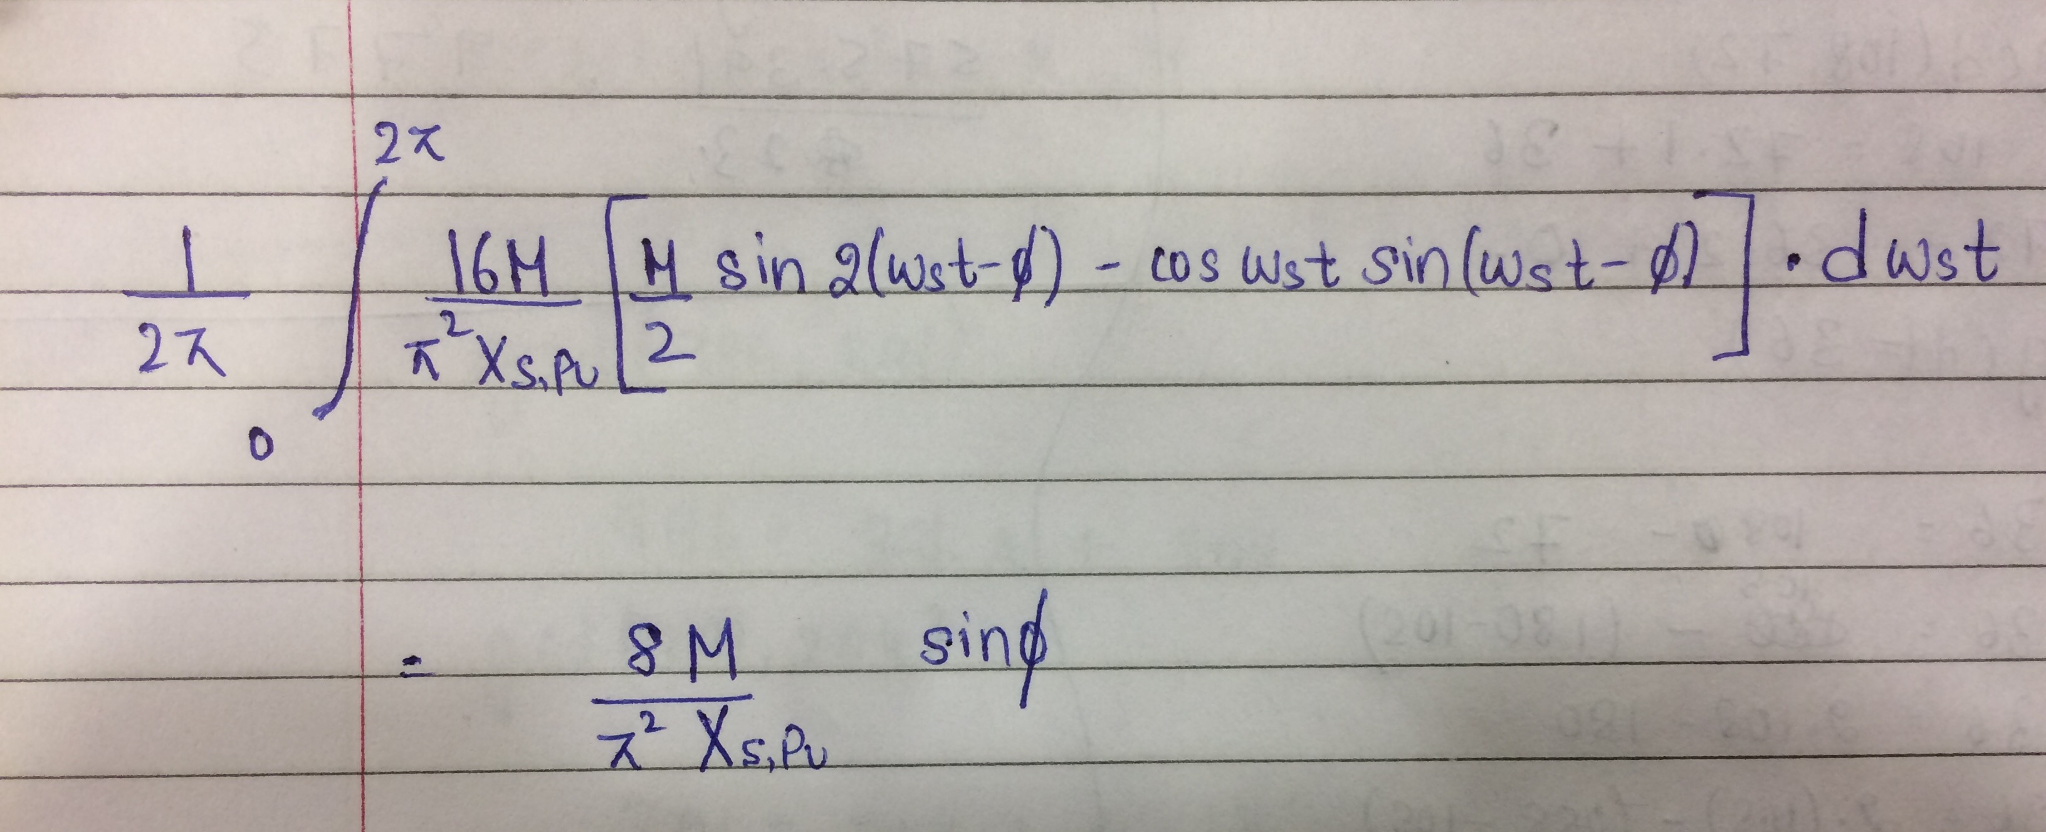 \frac{1}{2\pi} \int_{0}^{2\pi} \frac{16M}{\pi^2 X_{s,pu}} \left[ \frac{M}{2} \sin 2(\omega_s t - \phi) - \cos \omega_s t \sin(\omega_s t - \phi) \right] \cdot d\omega_s t
= \frac{8M}{\pi^2 X_{s,pu}} \sin\phi